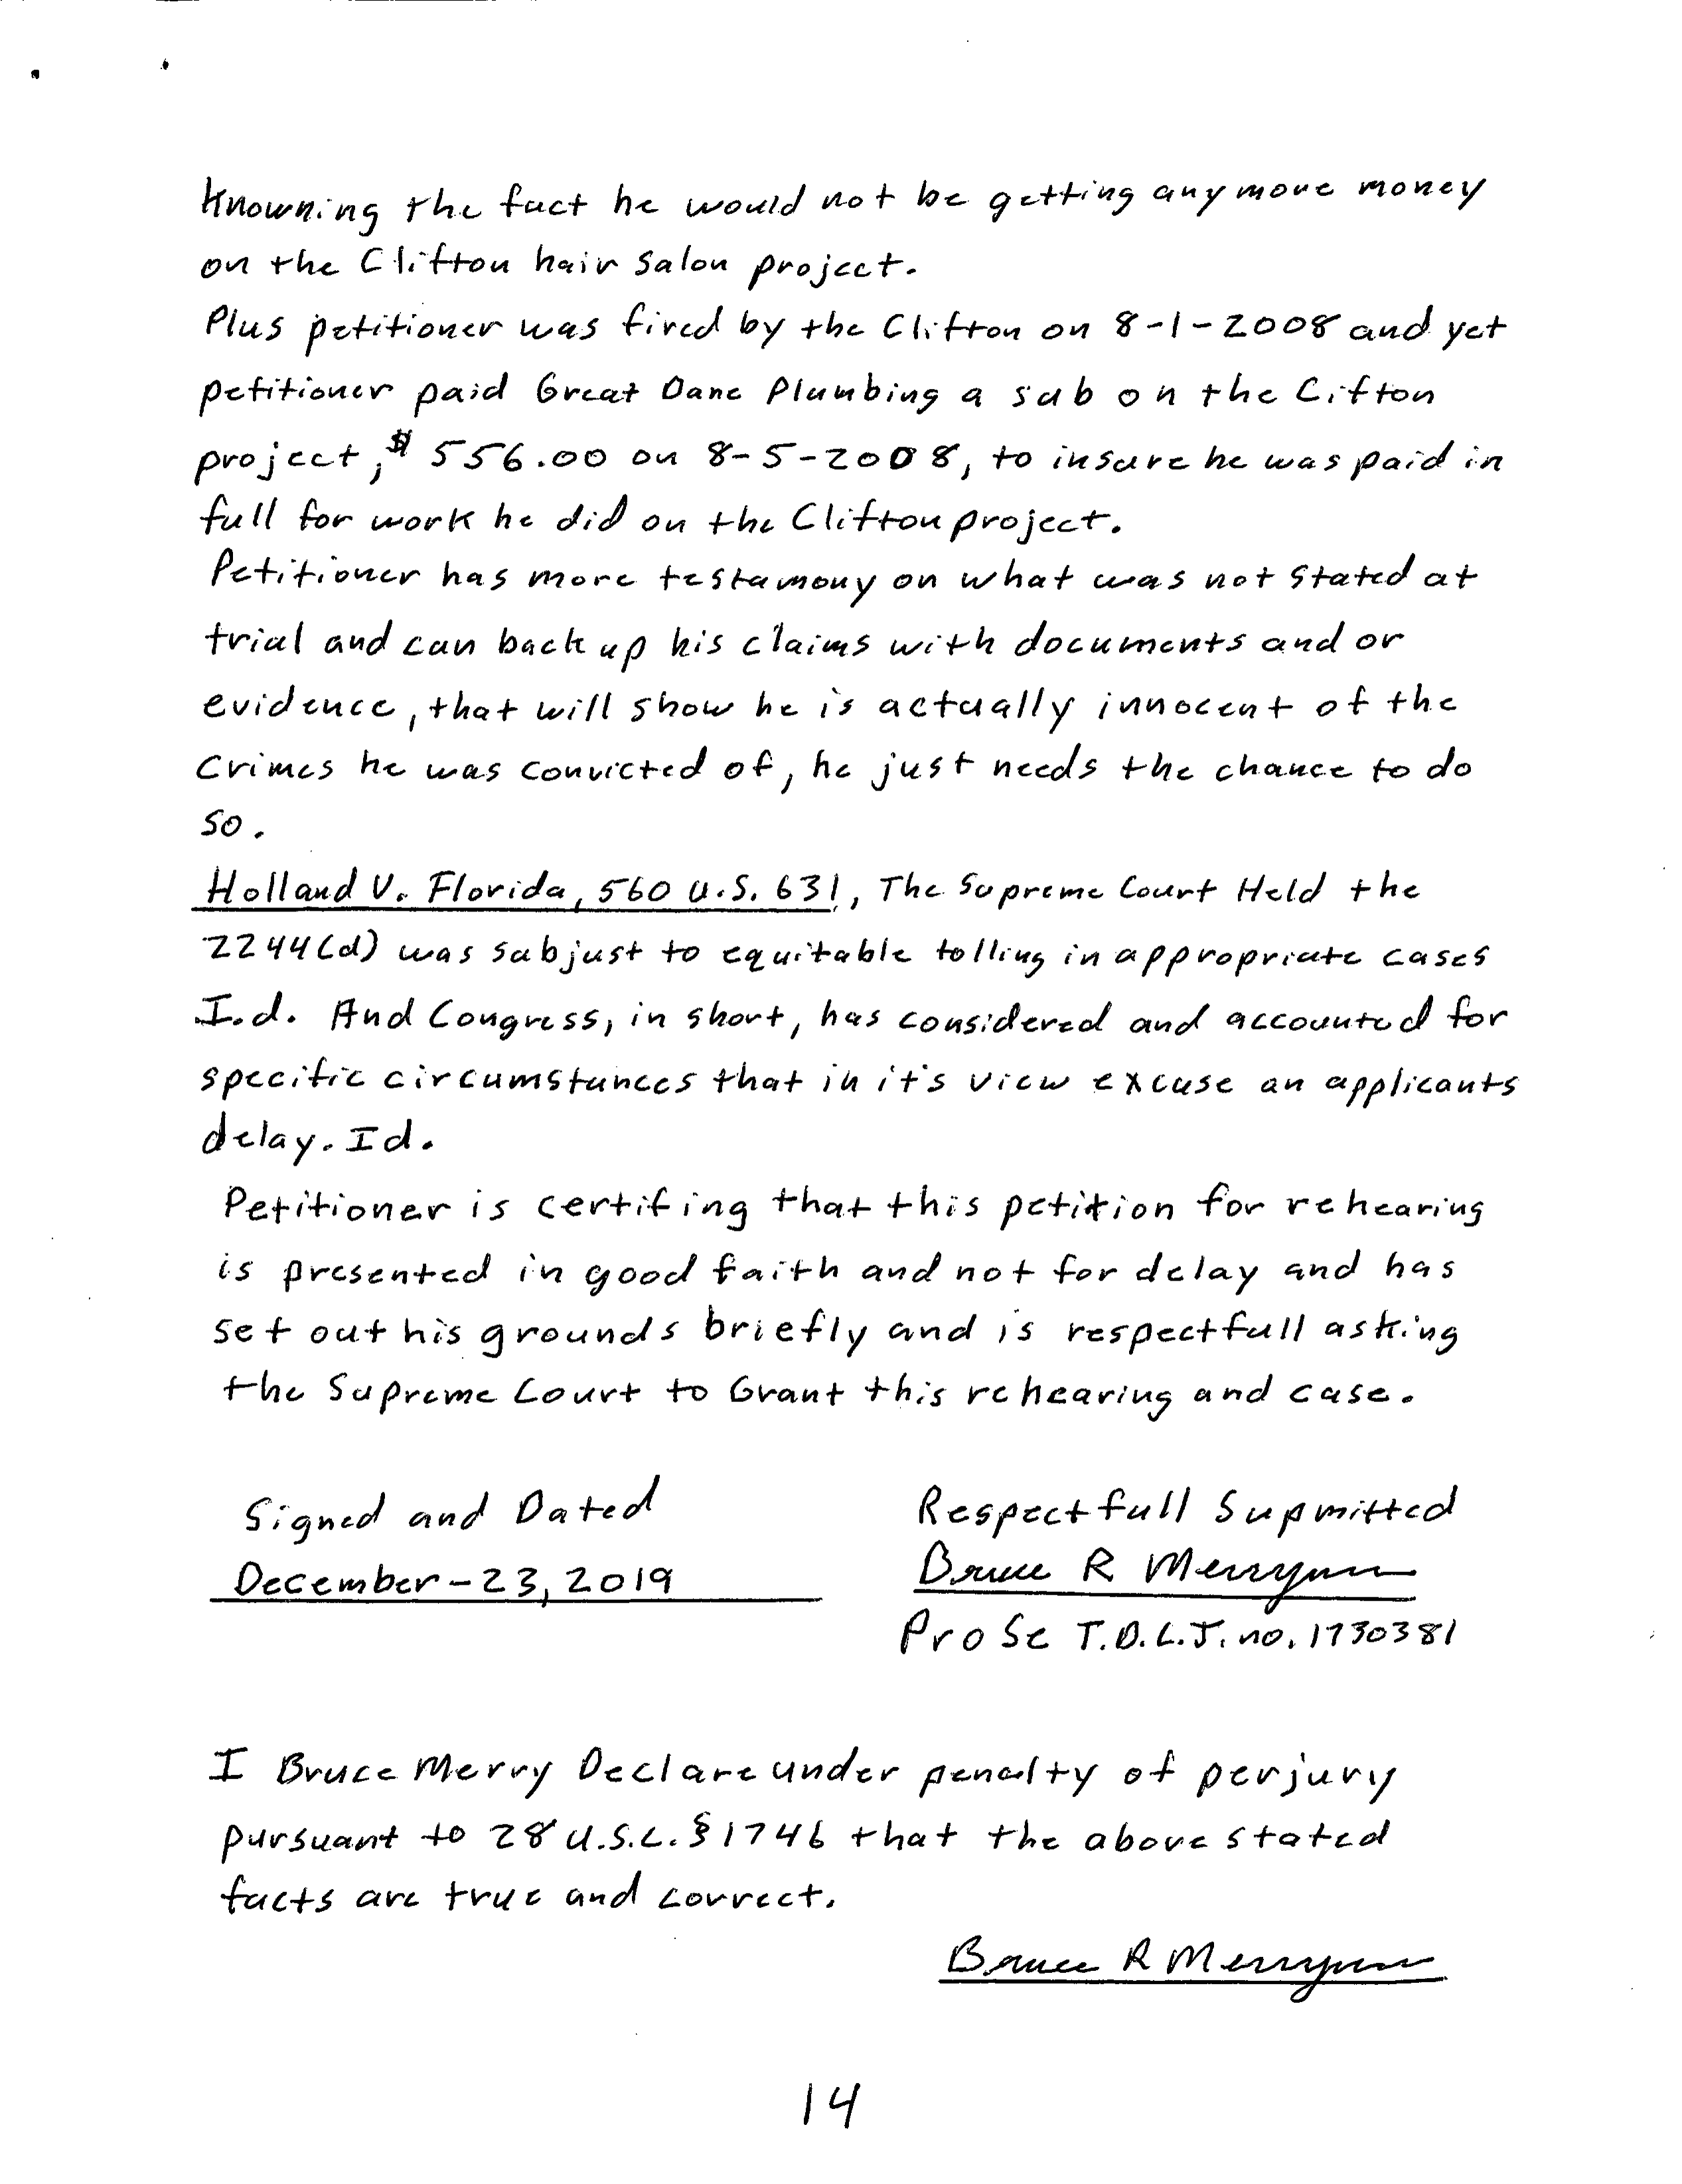 Knowning the fact he would not be getting anymore money
on the Clifton hair salon project.
Plus petitioner was fired by the Clifton on 8-1-2008 and yet
petitioner paid Great Dane Plumbing a sub on the Cifton
project, $ 556.00 on 8-5-2008, to insure he was paid in
full for work he did on the Clifton project.
Petitioner has more testamony on what was not stated at
trial and can back up his claims with documents and or
evidence, that will show he is actually innocent of the
crimes he was convicted of, he just needs the chance to do
so.
Holland V. Florida, 560 U.S. 631, The Supreme Court Held the
2244(d) was subjust to equitable tolling in appropriate cases
I.d. And Congress, in short, has considered and accounted for
specific circumstances that in it's view excuse an applicants
delay. Id.
Petitioner is certifing that this petition for rehearing
is presented in good faith and not for delay and has
set out his grounds briefly and is respectfull asking
the Supreme Court to Grant this rehearing and case.
Signed and Dated
December-23, 2019
Respectfull Supmitted
Bruce R Merryman
Pro Se T.D.C.J. no. 1730381
I Bruce Merry Declare under penalty of perjury
pursuant to 28 U.S.C. § 1746 that the above stated
facts are true and correct.
Bruce R Merryman
14